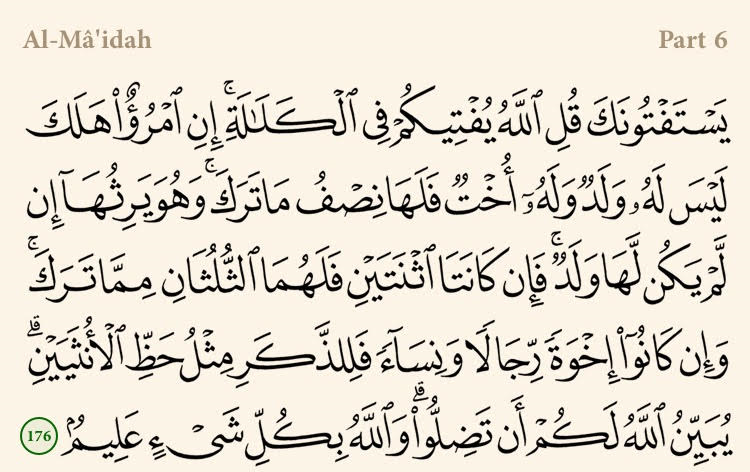 Al-Mâ'idah
Part 6
يَسْتَفْتُونَكَ قُلِ ٱللَّهُ يُفْتِيكُمْ فِى ٱلْكَلَـٰلَةِ ۚ إِنِ ٱمْرُؤٌا۟ هَلَكَ
لَيْسَ لَهُۥ وَلَدٌ وَلَهُۥٓ أُخْتٌ فَلَهَا نِصْفُ مَا تَرَكَ ۚ وَهُوَ يَرِثُهَآ إِن
لَّمْ يَكُن لَّهَا وَلَدٌ ۚ فَإِن كَانَتَا ٱثْنَتَيْنِ فَلَهُمَا ٱلثُّلُثَانِ مِمَّا تَرَكَ ۚ
وَإِن كَانُوٓا۟ إِخْوَةً رِّجَالًا وَنِسَآءً فَلِلذَّكَرِ مِثْلُ حَظِّ ٱلْأُنثَيَيْنِ ۗ
يُبَيِّنُ ٱللَّهُ لَكُمْ أَن تَضِلُّوا۟ ۗ وَٱللَّهُ بِكُلِّ شَىْءٍ عَلِيمٌۢ 176